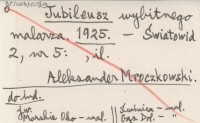 Jubileusz wybitnego
malarza. 1925. - Światowid
2, nr 5: , il.
Aleksander Mroczkowski.
do ind.
Morskie Oko - mal. || Świnica - mal.